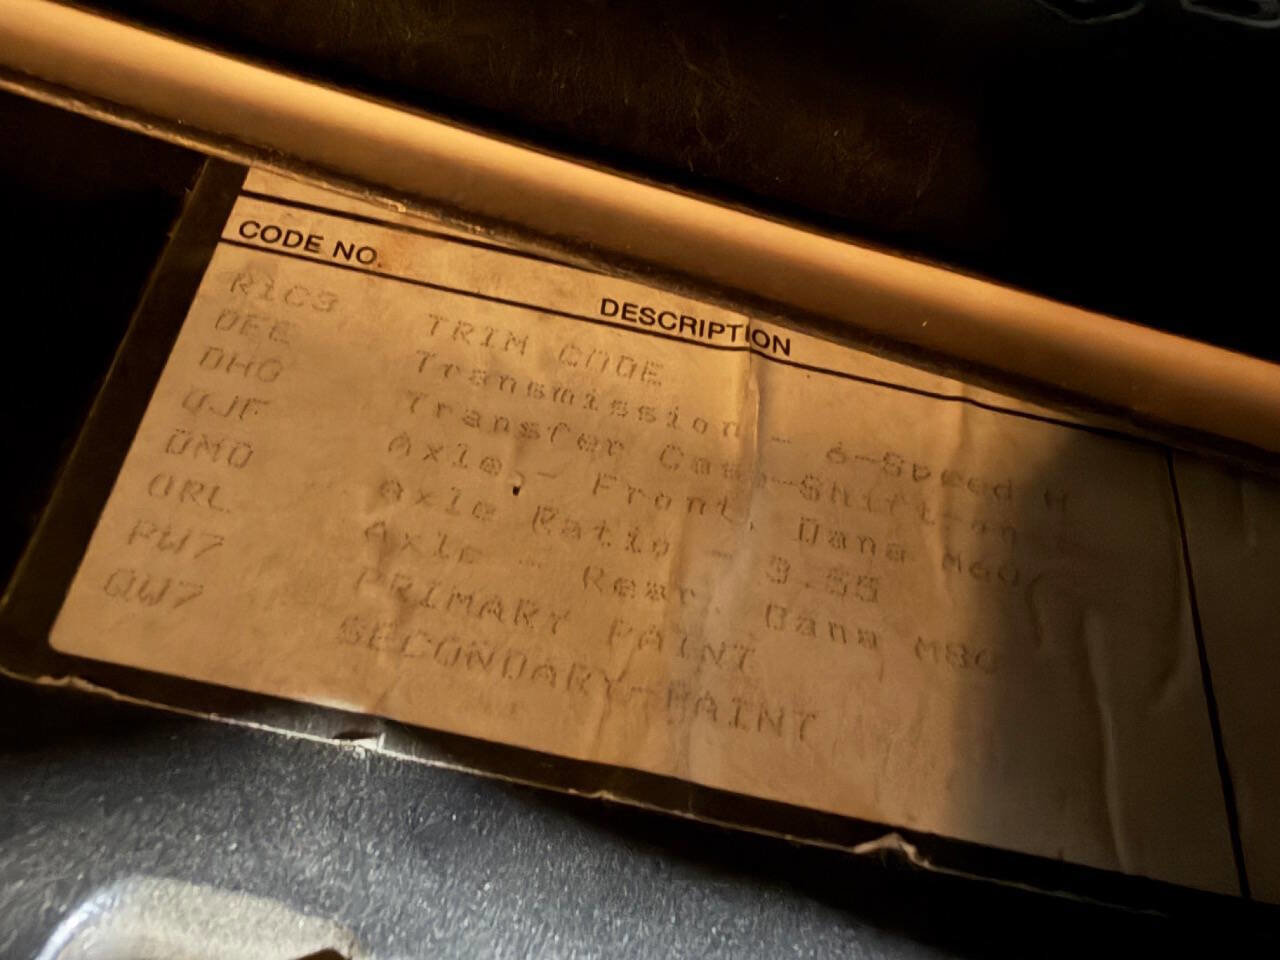 CODE NO. DESCRIPTION
R1C3 TRIM CODE
DEE Transmission - 6-Speed H
DHG Transfer Case-Shift-on
DJF Axle - Front, Dana M60(
DMD Axle Ratio - 3.55
DRL Axle - Rear, Dana M80
PW7 PRIMARY PAINT
QW7 SECONDARY-PAINT